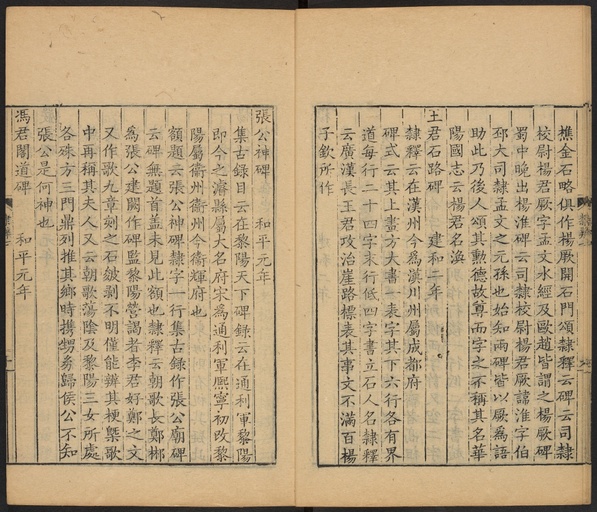 樵金石略俱作楊厥開石門頌隸釋云碑云司隸
校尉楊君厥字孟文水經及歐趙皆謂之楊厥碑
蜀中晚出楊淮碑云司隸校尉楊君厥諱淮字伯
邳大司隸孟文之元孫也始知兩碑皆以厥爲語
助此乃後人頌其勲德故尊而字之不稱其名華
陽國志云楊君名渙
王君石路碑 建和二年
隸釋云在漢州今爲漢川州屬成都府
碑式云其上畫方大書一表字其下六行各有界
道每行二十四字末行低四字書立石人名隸釋
云廣漢長王君攻治崖路標表其事文不滿百楊
子欽所作
張公神碑 和平元年
集古録目云在黎陽天下碑録云在通利軍黎陽
即今之濬縣屬大名府宋爲通利軍熙寧初改黎
陽屬衛州衛州今衛輝府也
額題云張公神碑隸字一行集古録作張公廟碑
云碑無題首蓋未見此額也隸釋云朝歌長鄭郴
爲張公建闕作碑監黎陽營謁者李君好鄭之文
又作歌九章刻之石皴剥不明僅能辨其梗槩歌
中再稱其夫人又云朝歌蕩陰及黎陽三女所處
各殊方三門鼎列推其鄉時携甥㐱歸侯公不知
張公是何神也
馮君閣道碑 和平元年